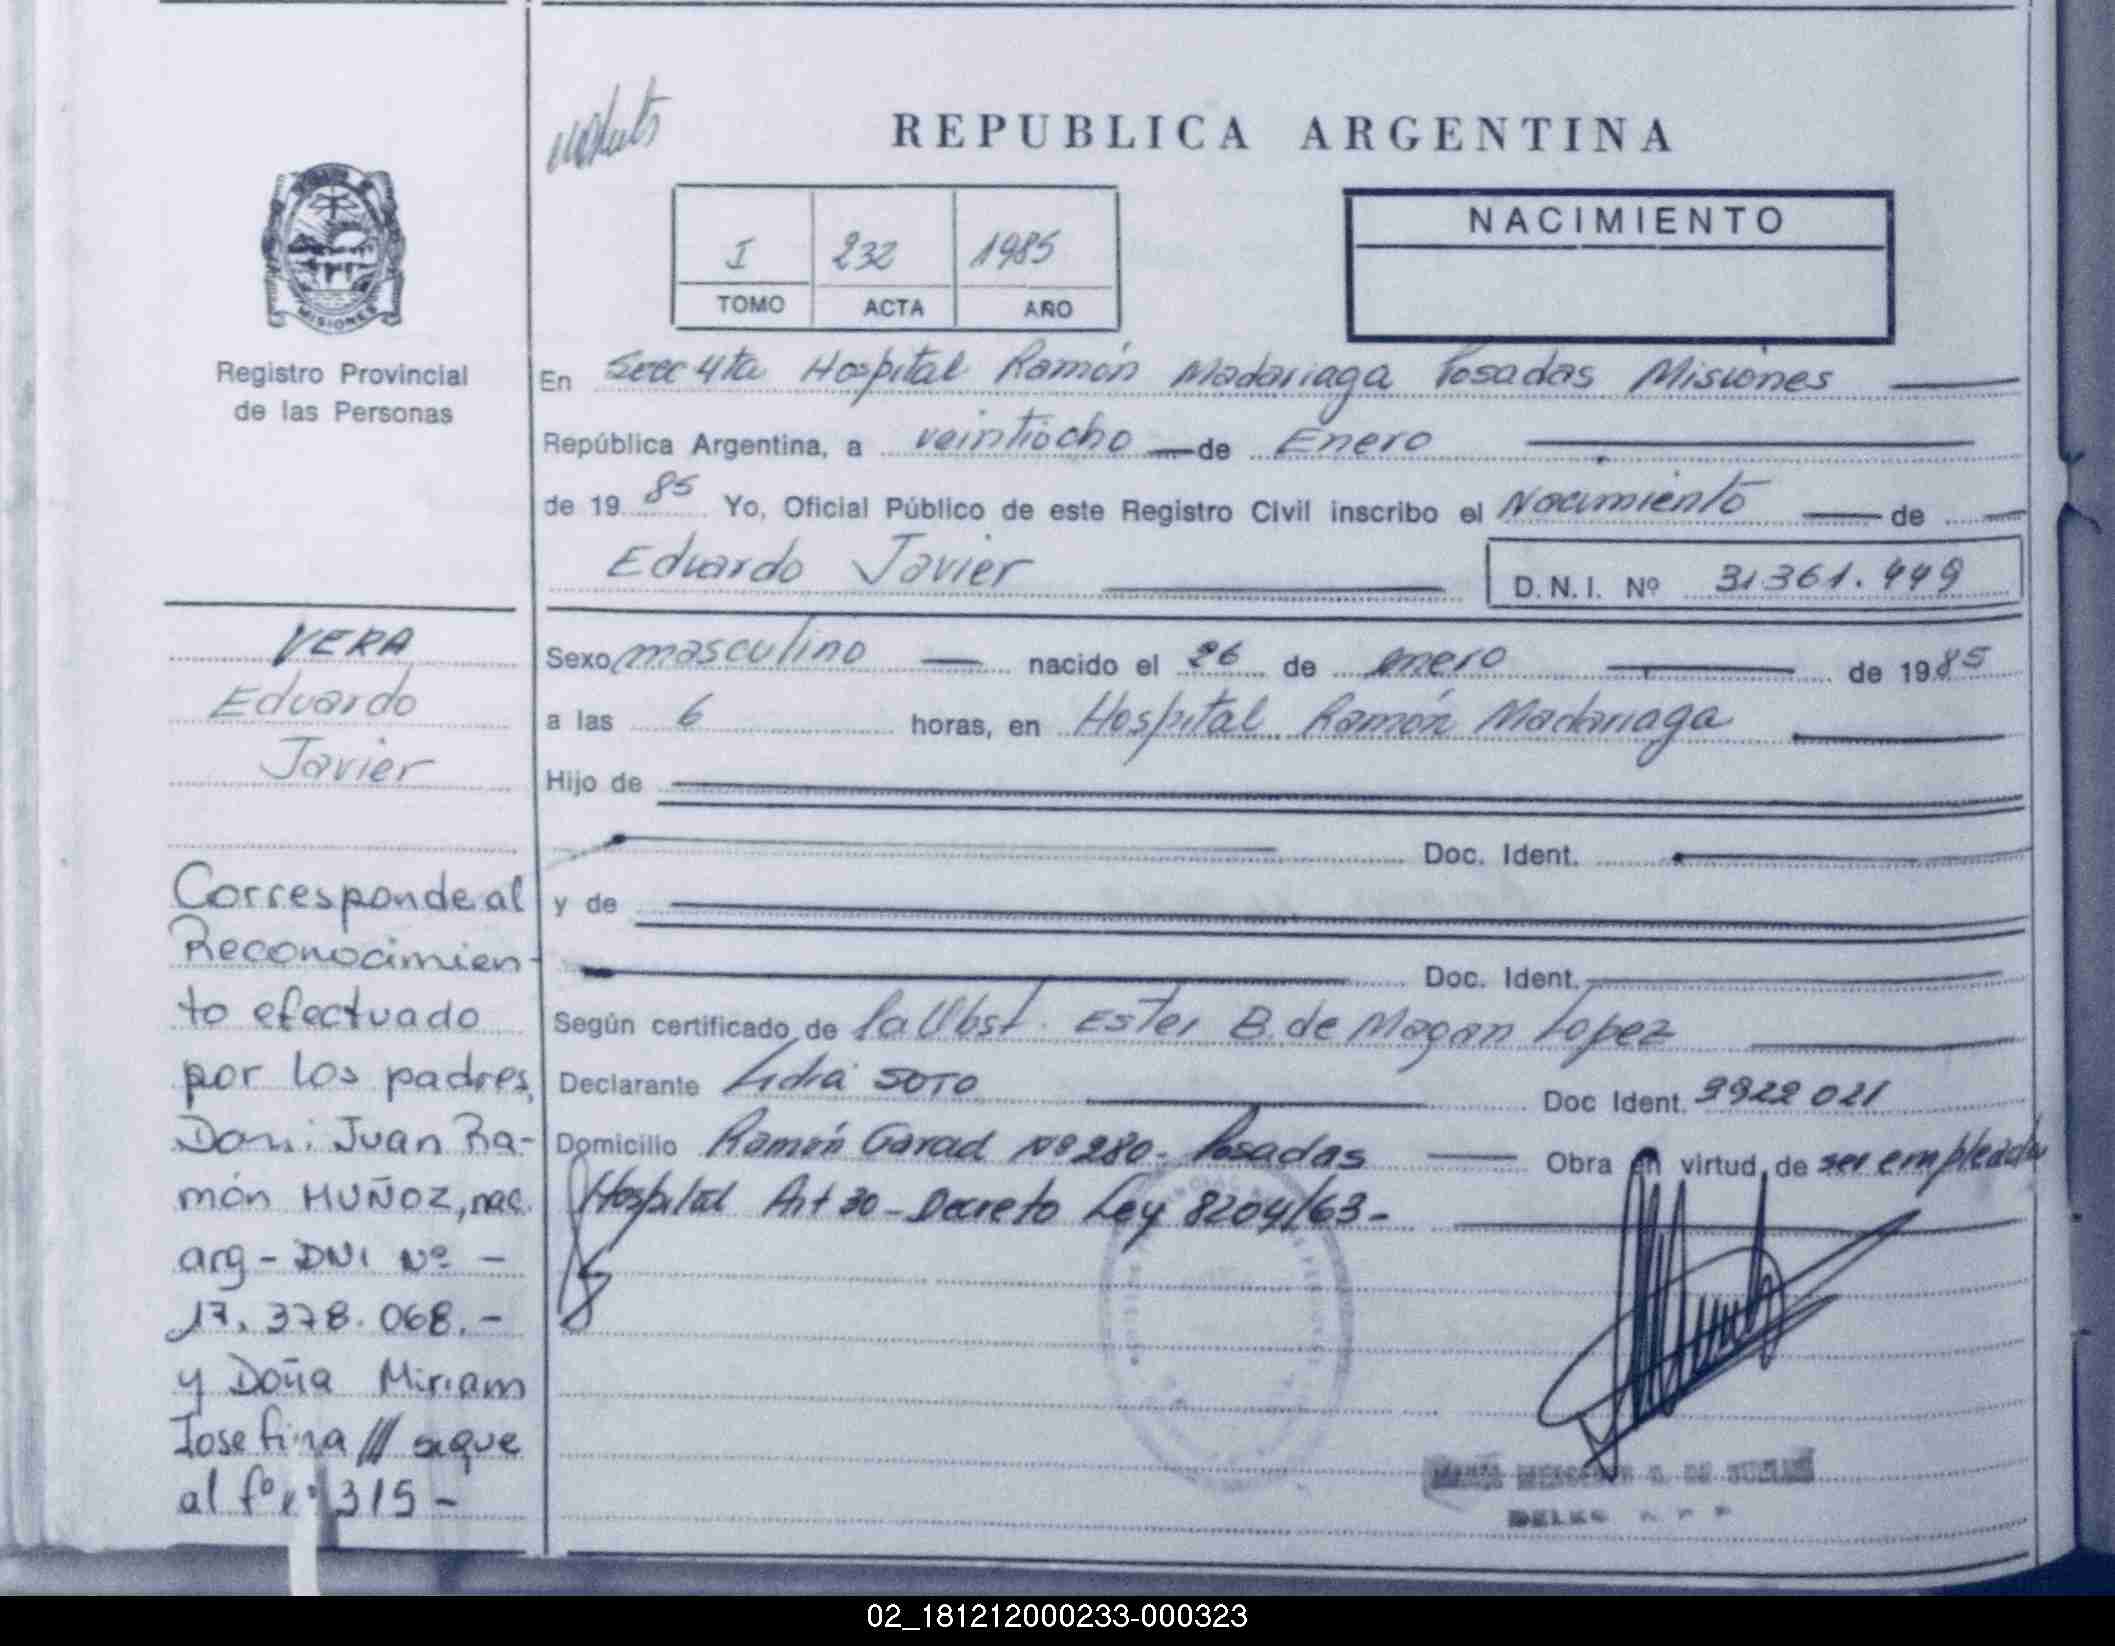 REPUBLICA ARGENTINA
I 232 1985
TOMO ACTA AÑO
NACIMIENTO
MISIONES
Registro Provincial
de las Personas
En Secc 4ta Hospital Ramón Madariaga Posadas Misiones
República Argentina, a veintiocho de Enero
de 1985 Yo, Oficial Público de este Registro Civil inscribo el Nacimiento de
Eduardo Javier
D.N.I. Nº 31361.449
VERA
Eduardo
Javier
Sexo masculino nacido el 26 de enero de 1985
a las 6 horas, en Hospital Ramón Madariaga
Hijo de
Doc. Ident.
y de
Doc. Ident.
Según certificado de la Obst. Ester B. de Magan Lopez
Declarante Lidia SOTO Doc Ident. 9922021
Domicilio Ramón Garad Nº 280- Posadas Obra en virtud de ser empleada
Hospital Art 30 - Decreto Ley 8204/63-
Corresponde al
Reconocimien-
to efectuado
por los padres,
Don: Juan Ra-
món MUÑOZ, nac.
arg - DNI Nº -
17.378.068.-
y Doña Miriam
Josefina /// sigue
al fº nº 315 -
02_181212000233-000323